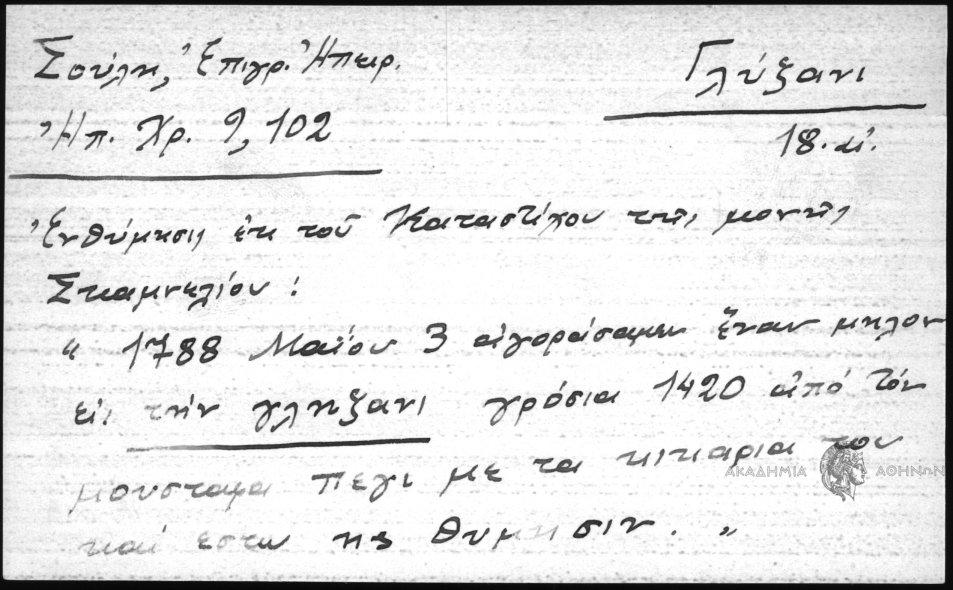 Σούλη, Ἐπιγρ. Ἠπειρ.
Ἠπ. Χρ. 9, 102
Γλύξανι
18. αἰ.
Ἐνθύμησις ἐκ τοῦ Καταστίχου τῆς μονῆς
Σκαμνελίου :
“ 1788 Μαΐου 3 αἰγοράσαμεν ἕναν μηλον
εἰς τὴν γληξανι γρόσια 1420 ἀπό τόν
μουσταφα πεγι με τα κικαρια του
καί εστω ης θυμησιν. „
ΑΚΑΔΗΜΙΑ ΑΘΗΝΩΝ